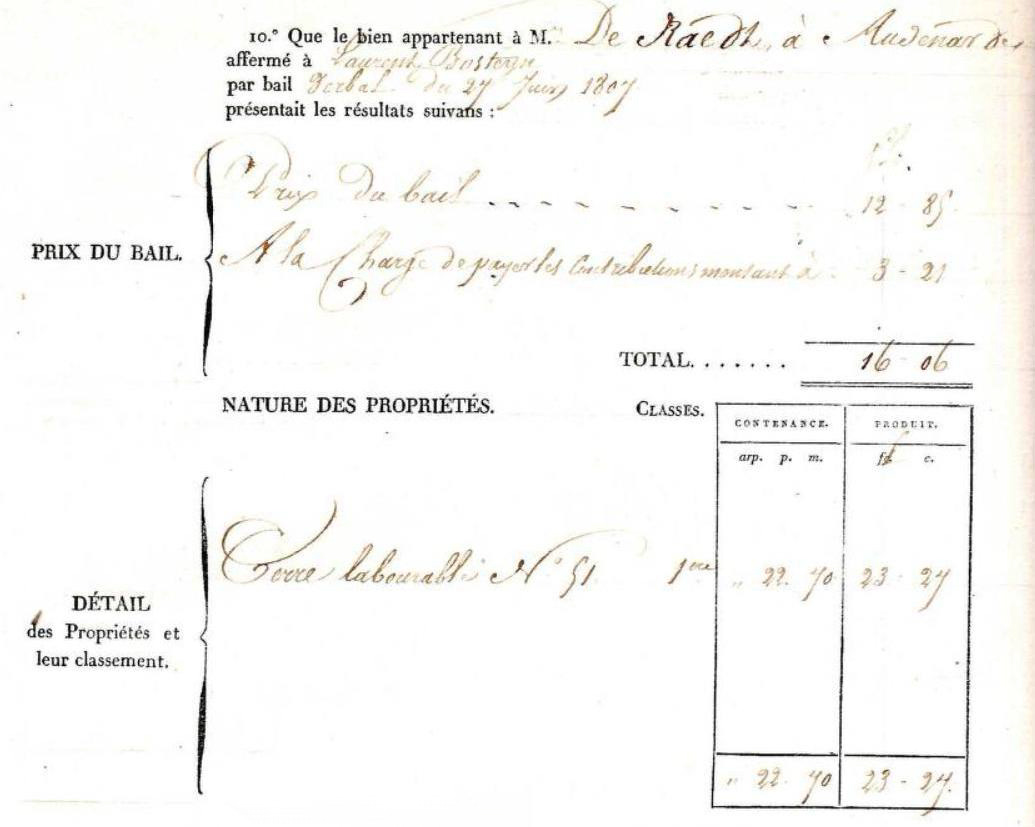 10.° Que le bien appartenant à M. De Raedt, à Audenarde
affermé à Laurent Bosteyn
par bail Verbal du 27 Juin 1807
présentait les résultats suivans :
fl.
Prix du bail . . . . . . . . . 12 - 85
PRIX DU BAIL.
A la Charge de payer les Contributions montant à 3 - 21
TOTAL. . . . . . . 16 - 06
NATURE DES PROPRIÉTÉS. CLASSES. CONTENANCE. PRODUIT.
arp. p. m. c.
Terre labourable N° 51 1ere " 22. 70 23 - 27
DÉTAIL
des Propriétés et
leur classement.
" 22. 70 23 - 27.